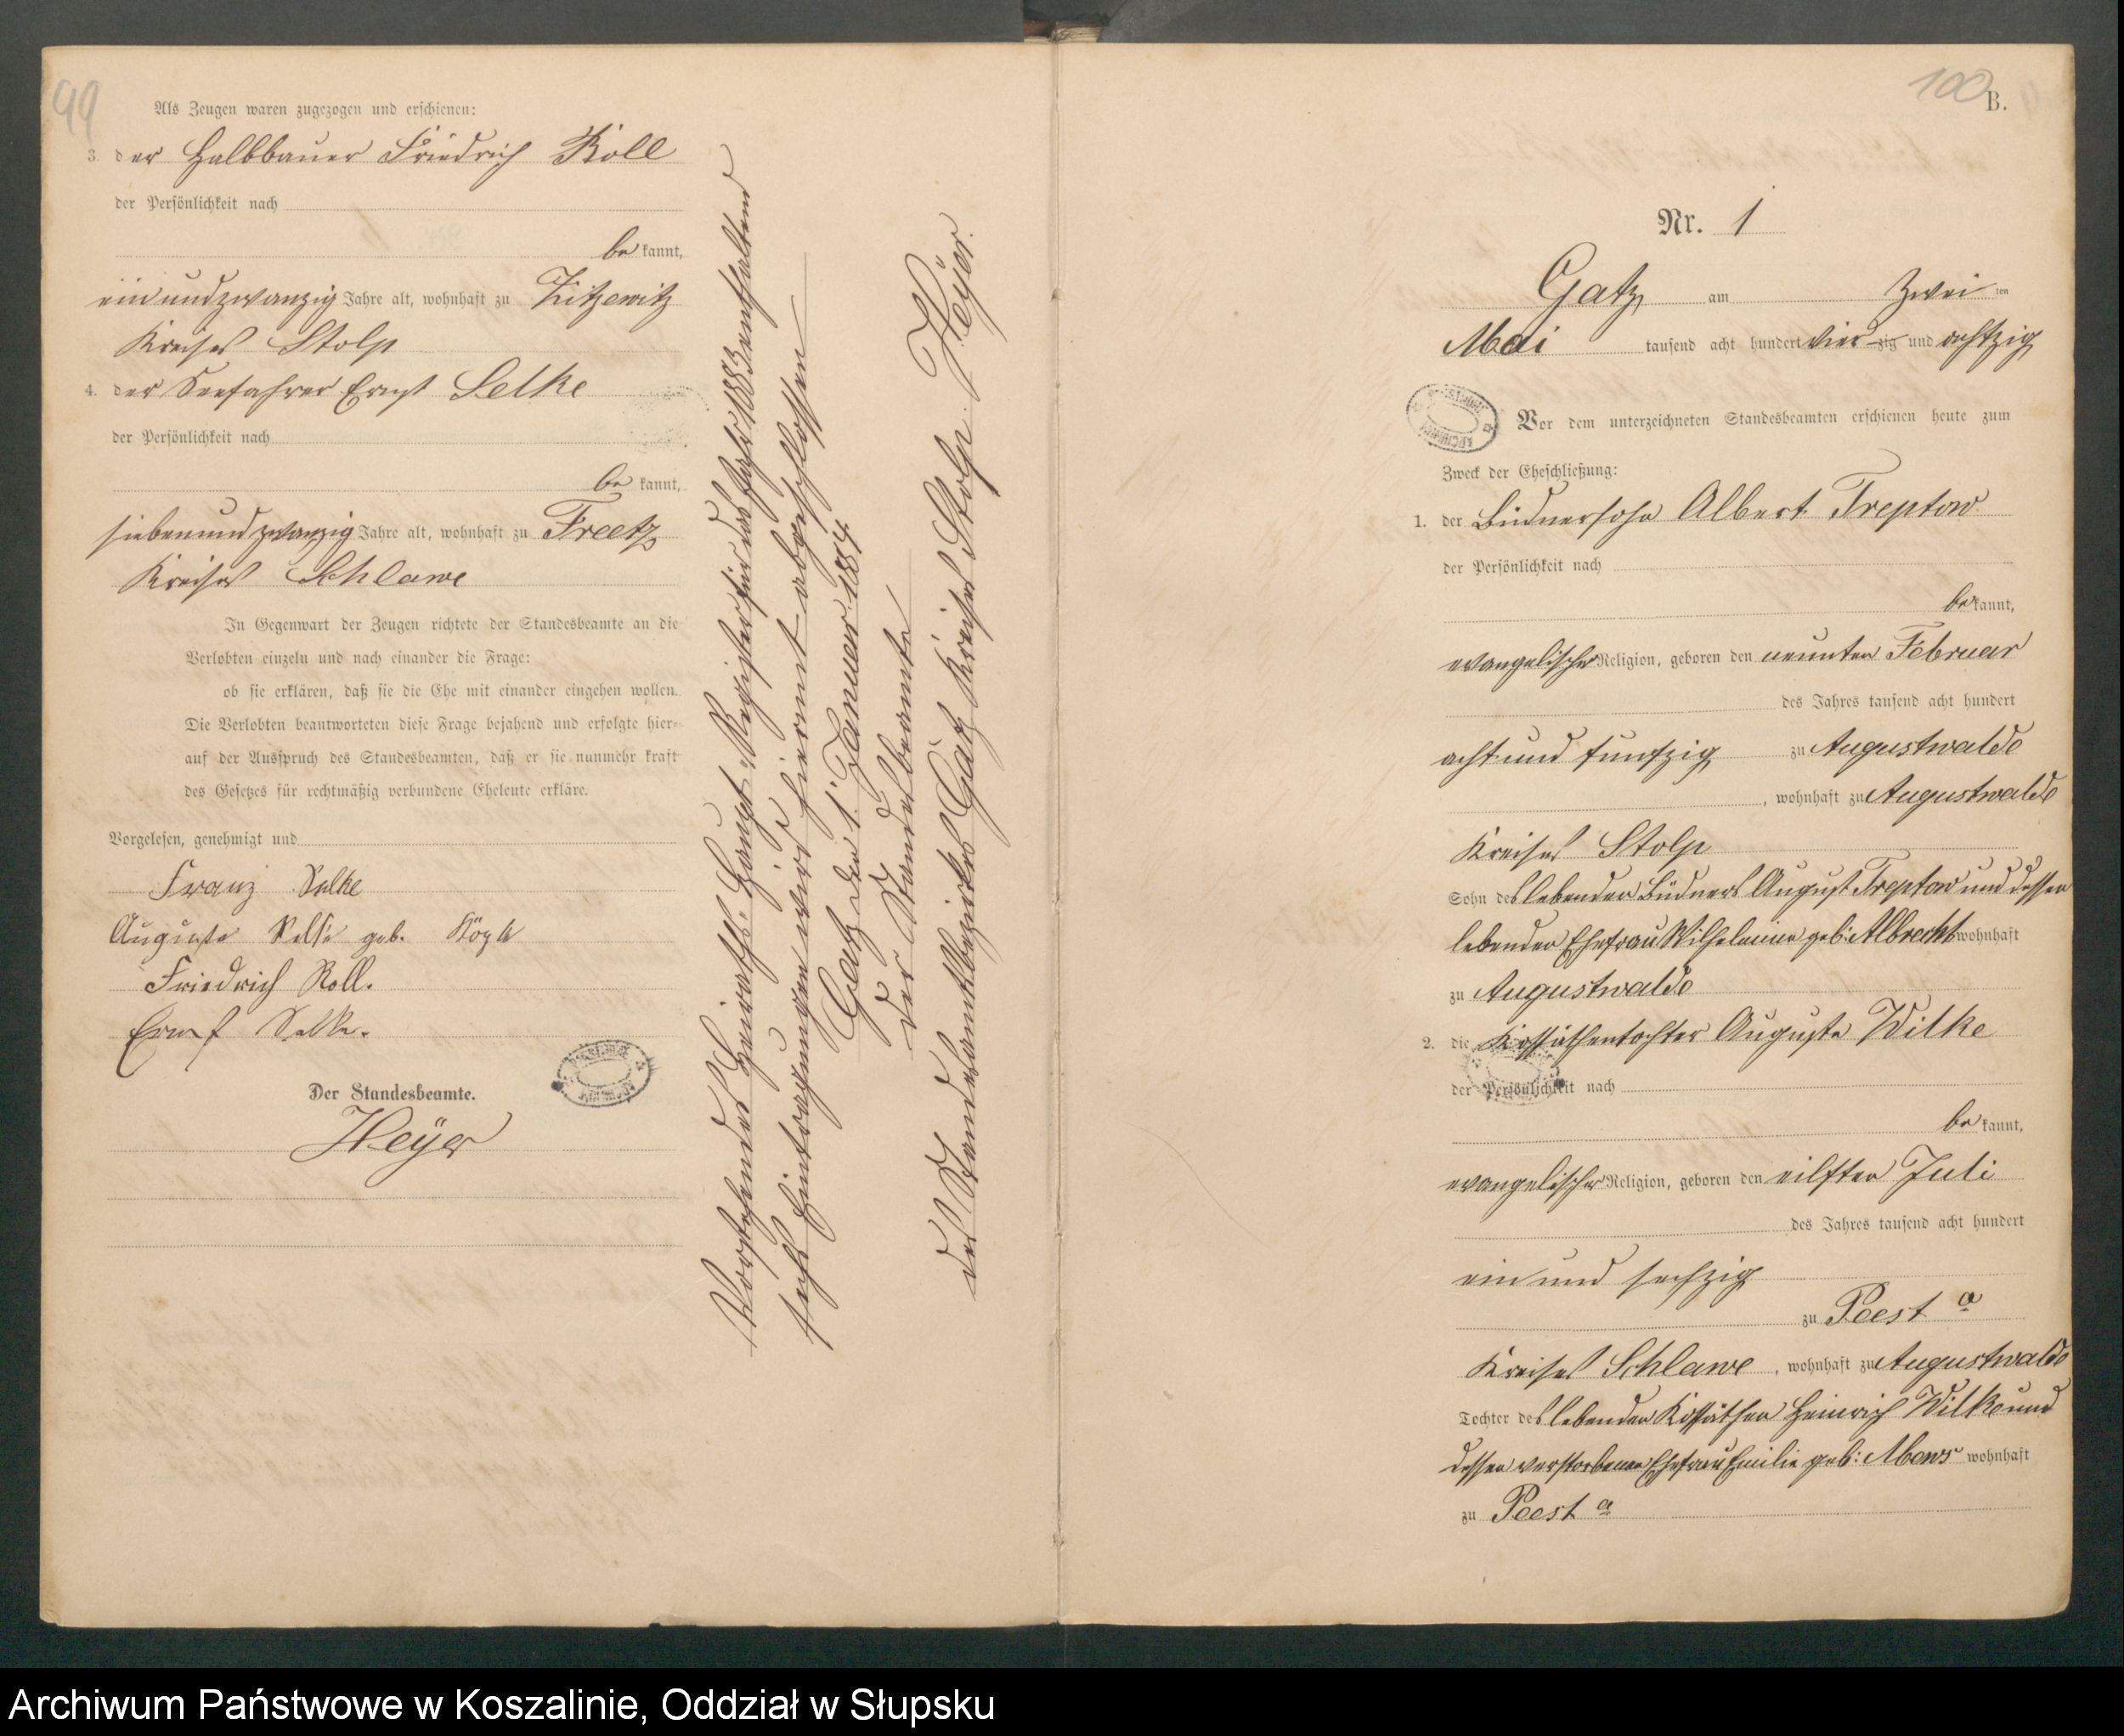 99
Als Zeugen waren zugezogen und erschienen:
3. der Halbbauer Friedrich Roll
der Persönlichkeit nach
be kannt,
ein und zwanzig Jahre alt, wohnhaft zu Zitzewitz
Kreises Stolp
4. der Seefahrer Ernst Selke
der Persönlichkeit nach
be kannt,
siebenundzwanzig Jahre alt, wohnhaft zu Freetz
Kreises Schlawe
In Gegenwart der Zeugen richtete der Standesbeamte an die
Verlobten einzeln und nach einander die Frage:
ob sie erklären, daß sie die Ehe mit einander eingehen wollen.
Die Verlobten beantworteten diese Frage bejahend und erfolgte hier-
auf der Ausspruch des Standesbeamten, daß er sie nunmehr kraft
des Gesetzes für rechtmäßig verbundene Eheleute erkläre.
Vorgelesen, genehmigt und
Franz Selke
Auguste Selke geb.
Friedrich Roll.
Ernst Selke.
Der Standesbeamte.
Heyer
Vorstehendes Heiraths-Haupt-Register für das Jahr 1883 enthaltend
sechs Eintragungen wird hiermit abgeschlossen
Gatz den 1. Januar 1884
Der Standesbeamte
des Standesamtsbezirkes Gatz Kreises Stolp. Heyer.
100
B.
Nr. 1
Gatz am Zwei ten
Mai tausend acht hundert vier zig und achtzig
Vor dem unterzeichneten Standesbeamten erschienen heute zum
Zweck der Eheschließung:
1. der Büdnersohn Albert Treptow
der Persönlichkeit nach
be kannt,
evangelischer Religion, geboren den neunten Februar
des Jahres tausend acht hundert
acht und funfzig zu Augustwalde
, wohnhaft zu Augustwalde
Kreises Stolp
Sohn des lebenden Büdners August Treptow und dessen
lebenden Ehefrau Wilhelmine geb: Albrecht wohnhaft
zu Augustwalde
2. die Kossäthentochter Auguste Wilke
der Persönlichkeit nach
be kannt,
evangelischer Religion, geboren den eilften Juli
des Jahres tausend acht hundert
ein und sechzig
zu Peest a
Kreises Schlawe, wohnhaft zu Augustwalde
Tochter des lebenden Kossäthen Heinrich Wilke und
dessen verstorbenen Ehefrau Emilie geb: wohnhaft
zu Peest a
Archiwum Państwowe w Koszalinie, Oddział w Słupsku